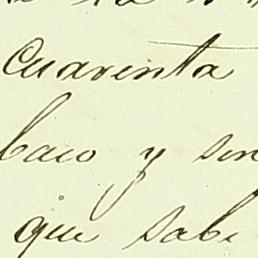 Cuarenta
baco y sin
que sabe